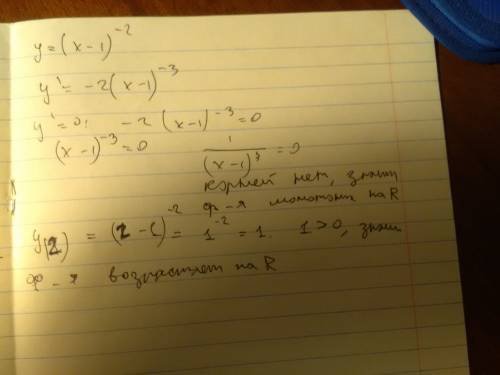 y = (x - 1)⁻²
y' = -2(x - 1)⁻³
y' = 0; -2(x - 1)⁻³ = 0
(x - 1)⁻³ = 0 1/(x - 1)³ = 0
корней нет, значит
ф-я монотонна на R
y(2) = (2 - 1)⁻² = 1⁻² = 1. 1 > 0, значит
ф-я возрастает на R